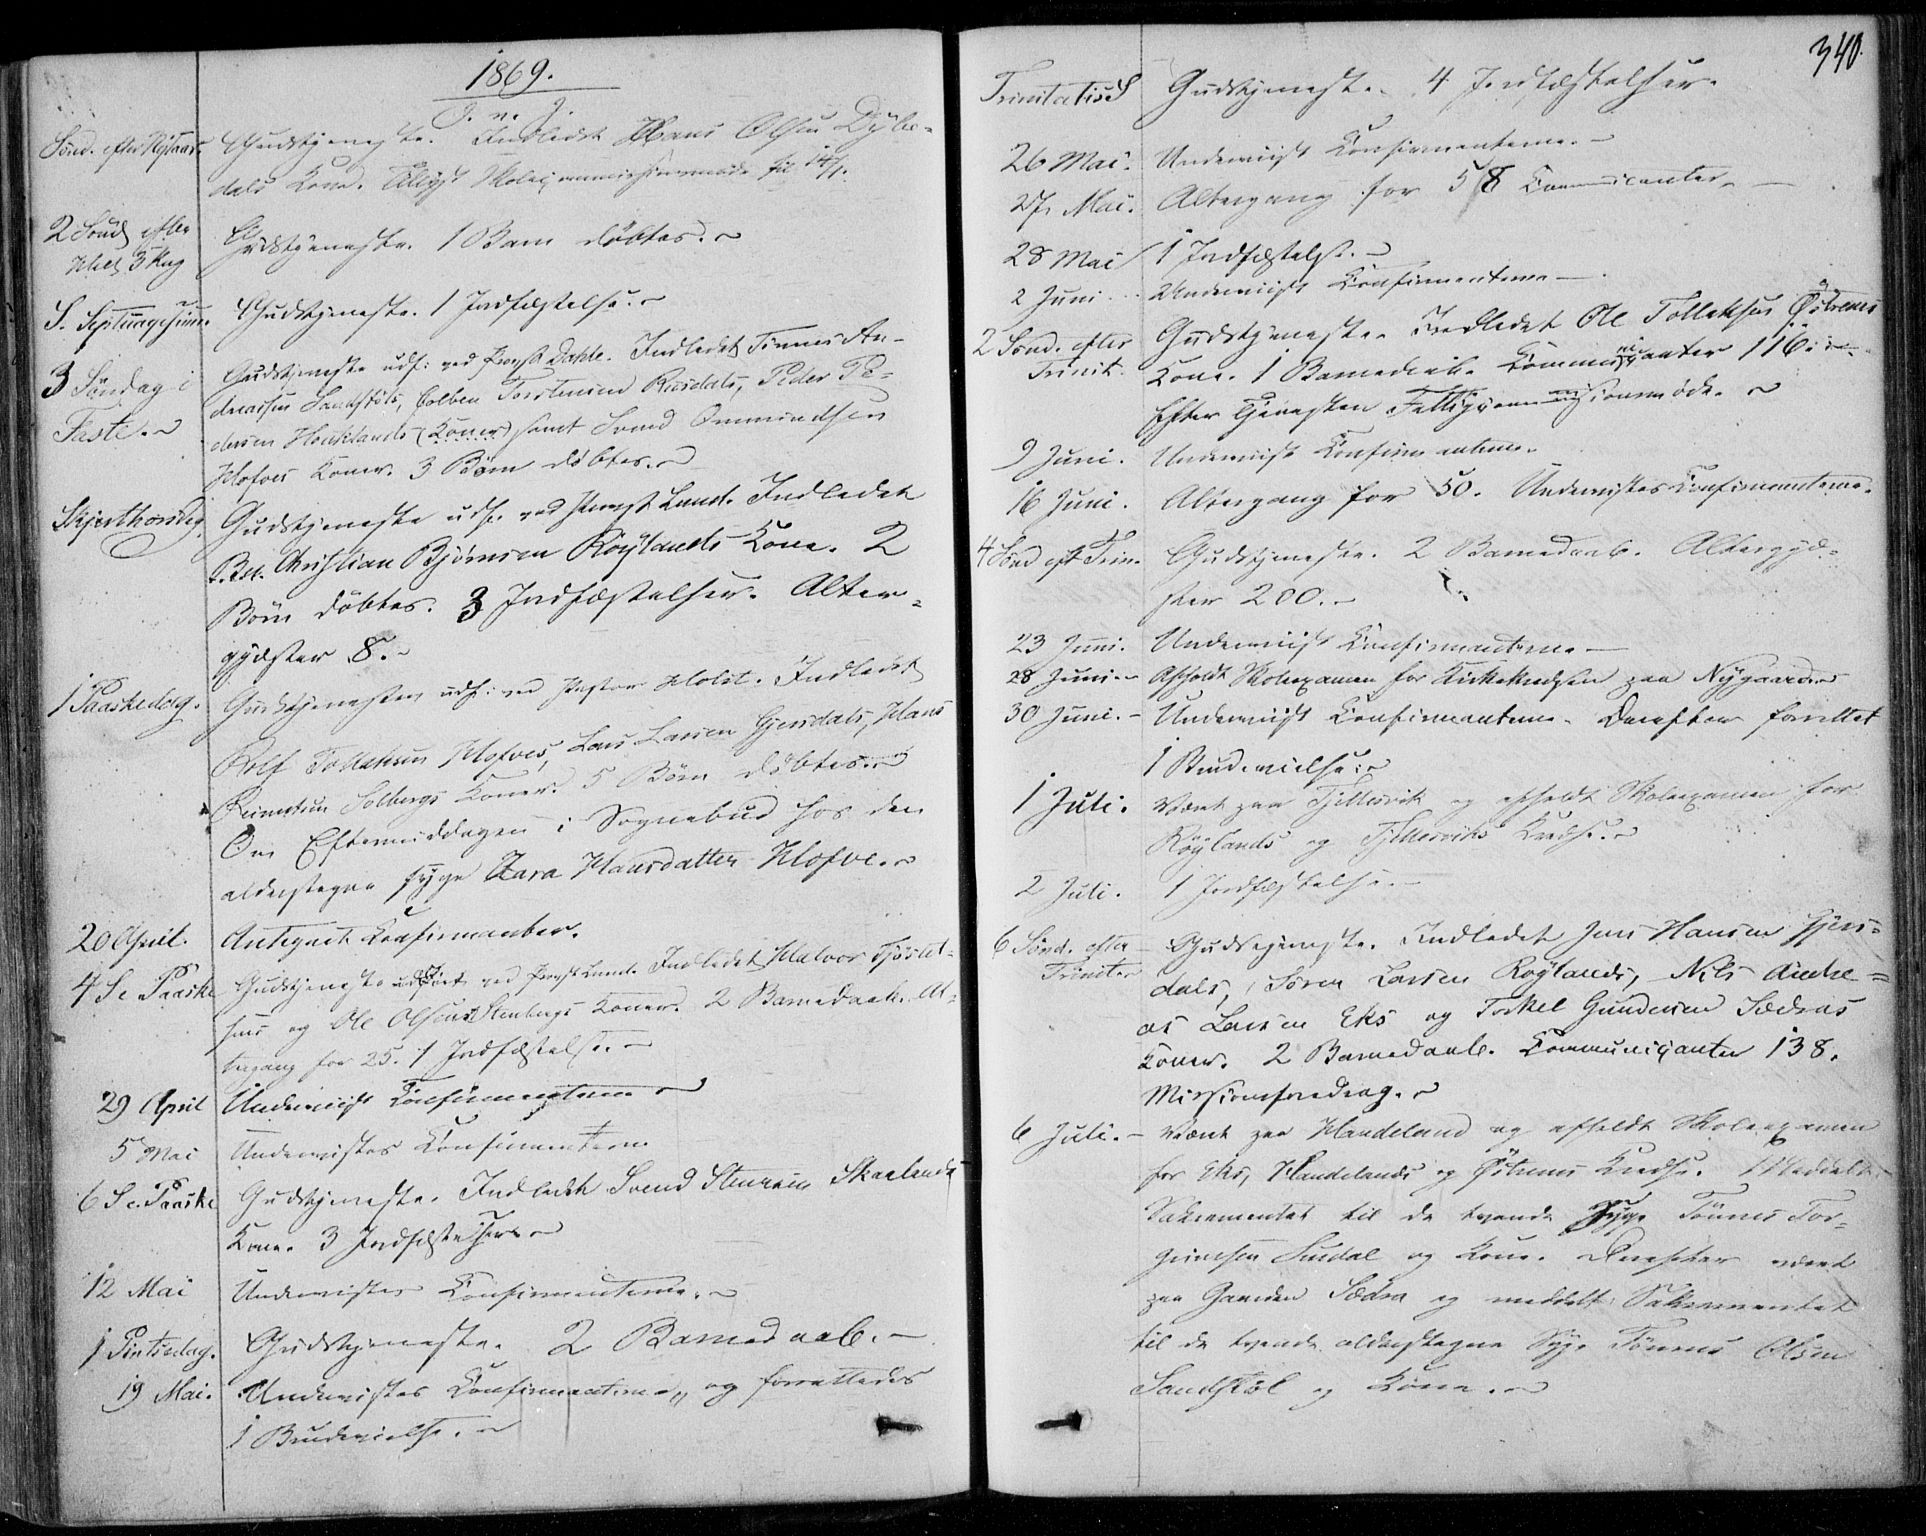 1869.
J. n. J.
Sönd. efter Nytaar. Gudstjeneste. Indledet Hans Olsen Dybe-
dals Kone. Tillyst Skolecommissionsmöde til 14/1.
2 Sönd. efter Gudstjeneste. 1 Barn döbtes.
Hell. 3 Kong
S. Septuagesima. Gudstjeneste. 1 Jordfæstelse.
3 Söndag i Gudstjeneste udf: ved Provst Dahle. Indledet Tönnes An-
Faste. dreassen Sandstöls, Colben Torstensen Risdals, Peder Pe-
dersen Houklands (Koner) samt Svend Ommundsen
Hofves Koner. 3 Börn döbtes.
Skjærthorsdag. Gudstjeneste udf. ved Provst Lund. Indledet
Christian Bjørnsen Röylands Kone. 2
Börn döbtes. 3 Jordfæstelser. Alter-
gjæster 8.
1 Paaskedag. Gudstjenesten udf: ved Pastor Holst. Indledet
Rolf Tollaksen Hofves, Lars Larsen Gjersdals, Hans
Reinertsen Solbergs Koner. 5 Börn döbtes.
Om Eftermiddagen i Sognebud hos den
alderstegne syge Sara Hansdatter Hofve.
20 April. Antegnet Confirmanter.
4 S e. Paaske Gudstjeneste udført ved Provst Lund. Indledet Halvor Tjöstel-
sens og Ole Olsens Stenbergs Koner. 2 Barnedaab. Al-
tergang for 25. 1 Jordfæstelse.
29 April Underviist Confirmanterne
5 Mai Undervistes Confirmanterne
6 S e. Paaske Gudstjeneste. Indledet Svend Stensen Skaalands
Kone. 3 Jordfæstelser.
12 Mai Undervistes Confirmanterne.
1 Pintsedag. Gudstjeneste. 2 Barnedaab.
19 Mai. Undervistes Confirmanterne, og forrettedes
1 Brudevielse.
340.
Trinitatis S Gudstjeneste. 4 Jordfæstelser.
26 Mai. Underviist Confirmanterne.
27 Mai. Altergang for 58 Communicanter.
28 Mai 1 Jordfæstelse.
2 Juni. Underviist Confirmanterne
2 Sönd. efter Gudstjeneste. Indledet Ole Tollaksens Östrems
Trinit. Kone. 1 Barnedaab. Communicanter 116.
Efter Tjenesten Fattigcommissionsmöde.
9 Juni. Underviist Confirmanterne.
16 Juni. Altergang for 50. Undervistes Confirmanterne.
4 Sönd eft Trin. Gudstjeneste. 2 Barnedaab. Altergjæ-
ster 200.
23 Juni. Underviist Confirmanterne
28 Juni. Afholdt Skoleexamen for Kirkekredsen paa Nygaard.
30 Juni. Underviist Confirmanterne. Derefter forrettet
1 Brudevielse.
1 Juli. Været paa Fjellesvik og afholdt Skoleexamen for
Röylands og Fjellesviks Kredse.
2 Juli. 1 Jordfæstelse.
6 Sönd. efter Gudstjeneste. Indledet Jens Hansen Gjers-
Trinitas dals, Sören Larsen Röylands, Nils Andre-
as Larsen Eks og Torkel Gundersen Sædras
Koner. 2 Barnedaab. Communicanter 138.
Missionsforedrag.
6 Juli. Været paa Haudeland og afholdt Skoleexamen
for Eks, Haudelands og Östrems Kredse. Meddelt
Sakramentet til de tvende syge Tönnes Tor-
grimsen Sindal og Kone. Derefter været
paa Gaarden Sædra og meddelt Sakramentet
til de tvende alderstegne Syge Tönnes Olsen
Sandstöl og Kone.